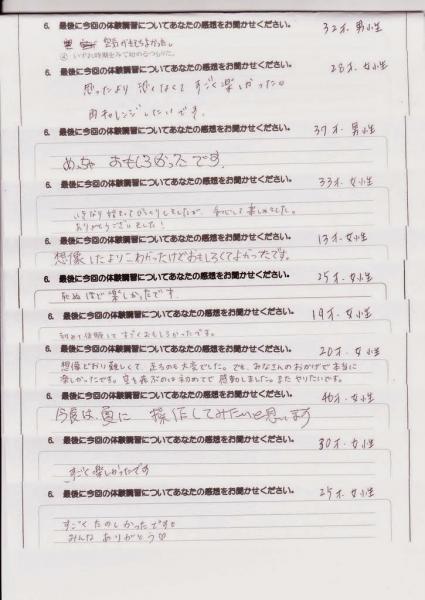 6. 最後に今回の体験講習についてあなたの感想をお聞かせください。 32才. 男性
空が気もちよかった。
6. 最後に今回の体験講習についてあなたの感想をお聞かせください。 28才. 女性
思ったより 恐くなくて すごく楽しかった。
再チャレンジしたいです。
6. 最後に今回の体験講習についてあなたの感想をお聞かせください。 37才. 男性
めっちゃ おもしろかったです。
6. 最後に今回の体験講習についてあなたの感想をお聞かせください。 33才. 女性
いきなり びっくりしましたが、安心して楽しめました。
ありがとうございました!
6. 最後に今回の体験講習についてあなたの感想をお聞かせください。 13才. 女性
想像していたよりこわかったけどおもしろくてよかったです。
6. 最後に今回の体験講習についてあなたの感想をお聞かせください。 25才. 女性
死ぬほど楽しかったです。
6. 最後に今回の体験講習についてあなたの感想をお聞かせください。 19才. 女性
初めて体験して すごくおもしろかったです。
6. 最後に今回の体験講習についてあなたの感想をお聞かせください。 20才. 女性
想像どおり難しくて、走るのも大変でした。でも、みなさんのおかげで本当に
楽しかったです。空を飛ぶのは初めてで 感動しました。また やりたいです。
6. 最後に今回の体験講習についてあなたの感想をお聞かせください。 46才. 女性
今度は、 操作してみたいと思います
6. 最後に今回の体験講習についてあなたの感想をお聞かせください。 30才. 女性
すごく楽しかったです
6. 最後に今回の体験講習についてあなたの感想をお聞かせください。 25才. 女性
すごく たのしかったです
みんな ありがとう♡